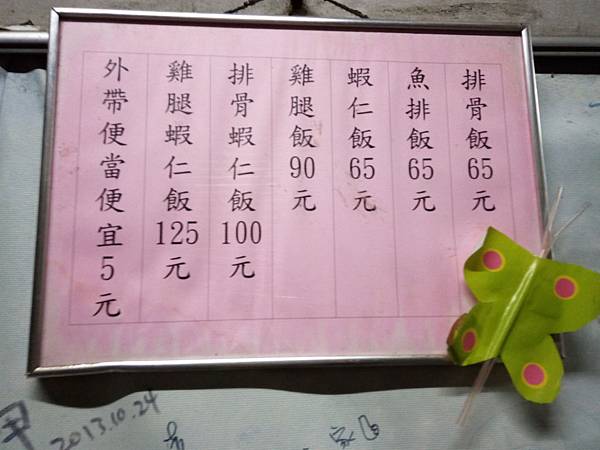 排骨飯65元
魚排飯65元
蝦仁飯65元
雞腿飯90元
排骨蝦仁飯100元
雞腿蝦仁飯125元
外帶便當便宜5元
2013.10.24